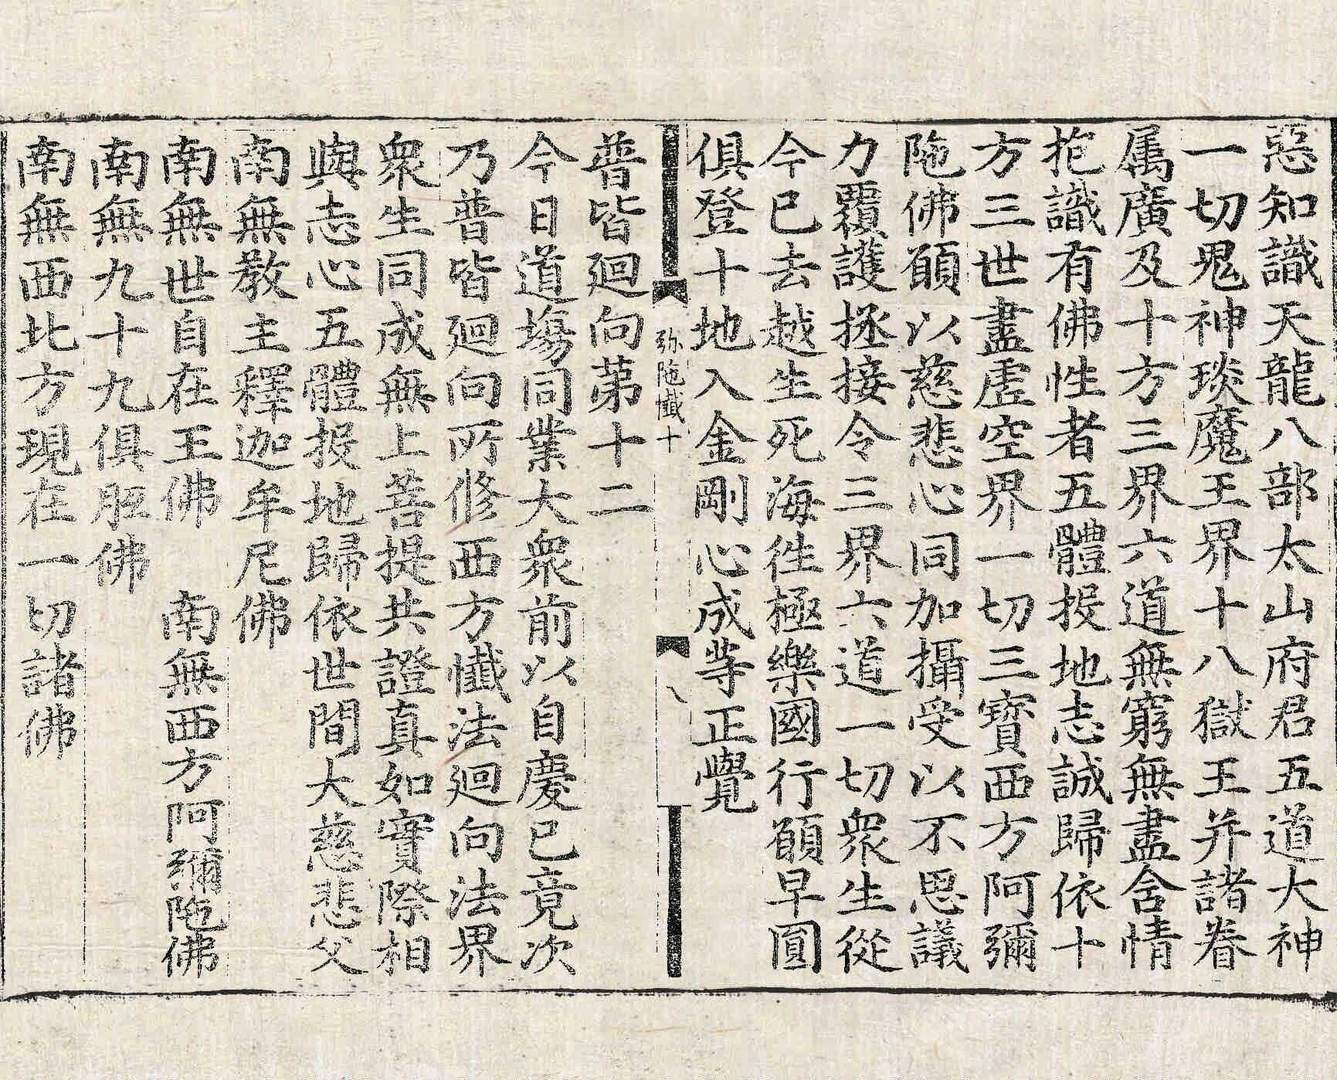 惡知識天龍八部太山府君五道大神
一切鬼神琰魔王界十八獄王并諸眷
属廣及十方三界六道無窮無盡含情
抱識有佛性者五體投地志誠歸依十
方三世盡虛空界一切三寶西方阿彌
陁佛願以慈悲心同加攝受以不思議
力覆護拯接令三界六道一切衆生從
今已去越生死海徃極樂國行願早圓
俱登十地入金剛心成等正覺
弥陁懺十
八
普皆迴向第十二
今日道塲同業大衆前以自慶已竟次
乃普皆迴向所修西方懺法迴向法界
衆生同成無上菩提共證真如實際相
與志心五體投地歸依世間大慈悲父
南無教主釋迦牟尼佛
南無世自在王佛　南無西方阿彌陁佛
南無九十九俱胝佛
南無西北方現在一切諸佛